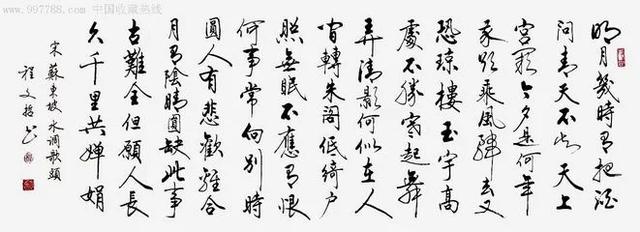 www.997788.com 中国收藏热线
明月幾時有把酒
問青天不知天上
宮闕今夕是何年
我欲乘風歸去又
恐瓊樓玉宇高
處不勝寒起舞
弄清影何似在人
間轉朱閣低綺户
照無眠不應有恨
何事常向别時
圓人有悲歡離合
月有陰晴圓缺此事
古難全但願人長
久千里共嬋娟
宋蘇東坡水调歌頭
程文书